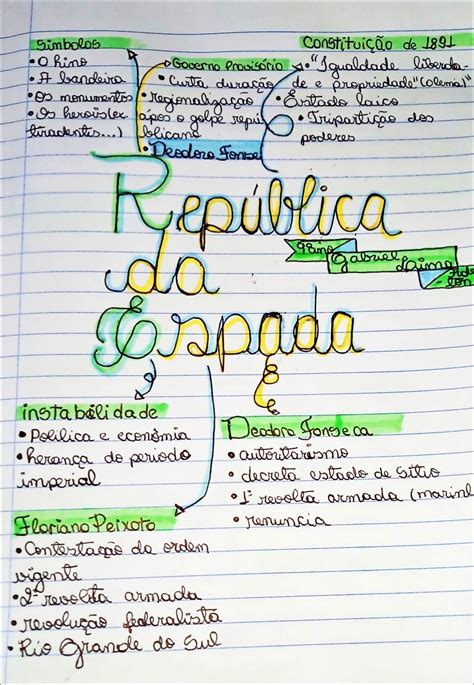 Símbolos
• O hino
• A bandeira
• Os monumentos
• Os heróis (ex.
tiradentes...)
Governo Provisório
• Curta duração
• regionalização
após o golpe repu
blicano
• Deodoro Fonse
Constituição de 1891
• "Igualdade liberda-
de e propriedade"
• Estado laico
• Tripartição dos
poderes
República
da
Espada
9º ano
Gabriel
Laima
instabilidade
• Política e econômia
• herança do periodo
imperial
Deodoro Fonseca
• autoritarismo
• decreta estado de sítio
• 1ª revolta armada (marinh
• renuncia
Floriano Peixoto
• Contestação da ordem
vigente
• 2ª revolta armada
• revolução federalista
• Rio Grande do Sul